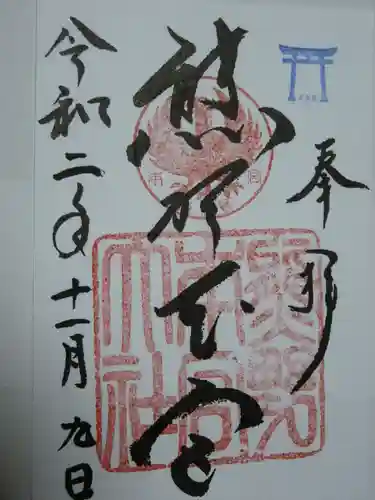 奉拝
熊野本宮
熊野
本宮
大社
令和二年十一月九日